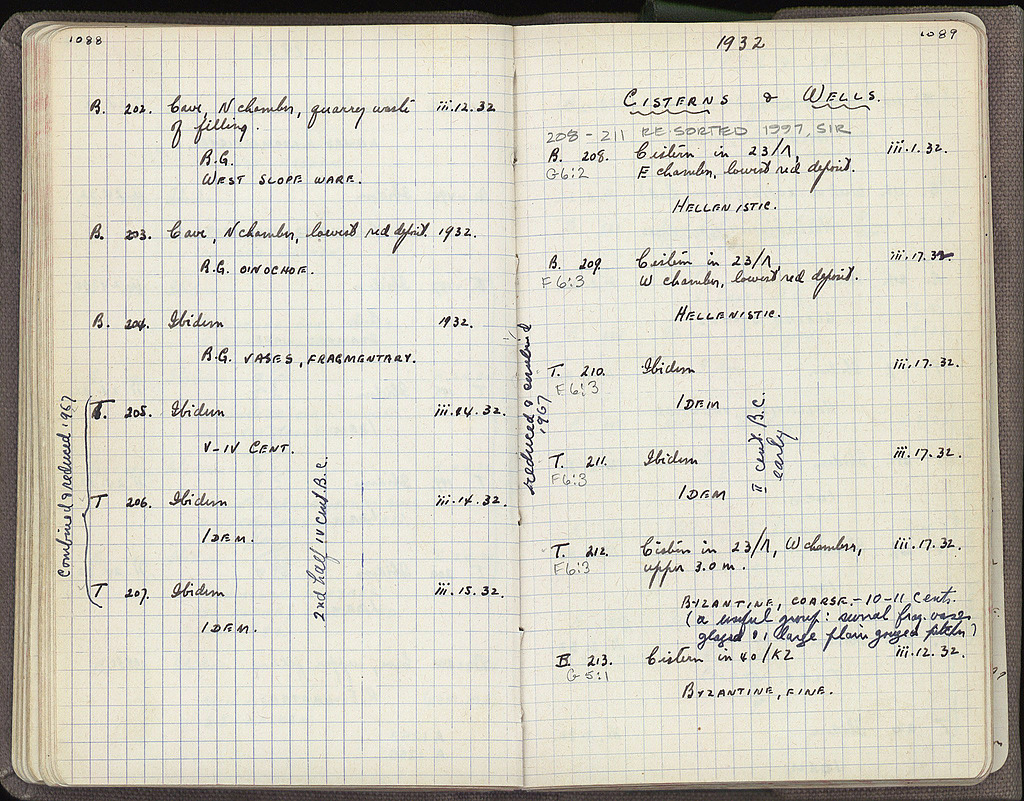 1088
B. 202. Cave, N chamber, quarry waste iii.12.32
of filling.
B.G.
WEST SLOPE WARE.
B. 203. Cave, N chamber, lowest red deposit. 1932.
B.G. OINOCHOE.
B. 204. Ibidem 1932.
B.G. VASES, FRAGMENTARY.
Combined & reduced 1967
T. 205. Ibidem iii.14.32.
V-IV CENT.
T 206. Ibidem iii.14.32.
IDEM.
2nd half IV cent. B.C.
T 207. Ibidem iii.15.32.
IDEM.
1089
1932
CISTERNS & WELLS.
208-211 RE-SORTED 1997, SIR
B. 208. Cistern in 23/Λ, iii.1.32.
G6:2 E chamber, lowest red deposit.
HELLENISTIC.
B. 209. Cistern in 23/Λ, iii.17.32
F6:3 W chamber, lowest red deposit.
HELLENISTIC.
reduced & combined
1967
T. 210. Ibidem iii.17.32.
F6:3
IDEM
T. 211. Ibidem iii.17.32.
F6:3
IDEM
II cent. B.C.
early
T. 212. Cistern in 23/Λ, W chamber, iii.17.32.
F6:3 upper 3.0 m.
BYZANTINE, COARSE.-10-11 Cents.
(a useful group: several frag. vases
glazed & 1 large plain gouged pitcher)
B. 213. Cistern in 40/ΚΖ iii.12.32.
G5:1
BYZANTINE, FINE.